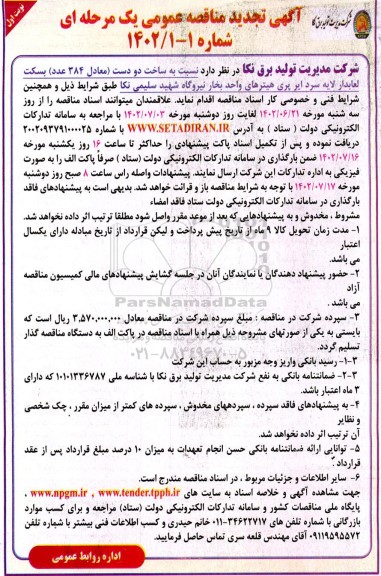 شرکت مدیریت تولید برق نکا
نوبت اول
آگهی تجدید مناقصه عمومی یک مرحله ای
شماره ۱-۱۴۰۲/۱
شرکت مدیریت تولید برق نکا در نظر دارد نسبت به ساخت دو دست (معادل ۳۸۴ عدد) بسکت
لعابدار لایه سرد ایر پری هیترهای واحد بخار نیروگاه شهید سلیمی نکا طبق شرایط ذیل و همچنین
شرایط فنی و خصوصی کار اسناد مناقصه اقدام نماید. علاقمندان میتوانند اسناد مناقصه را از روز
سه شنبه مورخه ۱۴۰۲/۰۶/۲۱ لغایت روز دوشنبه مورخه ۱۴۰۲/۰۷/۰۳ با مراجعه به سامانه تدارکات
الکترونیکی دولت ( ستاد ) به آدرس WWW.SETADIRAN.IR و شماره ۲۰۰۲۰۹۳۷۹۱۰۰۰۰۲۵
دریافت نموده و پس از تکمیل اسناد پاکت پیشنهادی را حداکثر تا ساعت ۱۶ روز یکشنبه مورخه
۱۴۰۲/۰۷/۱۶ ضمن بارگذاری در سامانه تدارکات الکترونیکی دولت ( ستاد ) صرفاً پاکت الف را به صورت
فیزیکی به اداره تدارکات این شرکت ارسال نمایند. پیشنهادات واصله راس ساعت ۸ صبح روز دوشنبه
مورخه ۱۴۰۲/۰۷/۱۷ با توجه به شرایط مناقصه باز و قرائت خواهد شد. بدیهی است به پیشنهادهای فاقد
بارگذاری در سامانه تدارکات الکترونیکی دولت ستاد فاقد امضاء
مشروط ، مخدوش و به پیشنهادهایی که بعد از موعد مقرر واصل شود مطلقا ترتیب اثر داده نخواهد شد.
۱- مدت زمان تحویل کالا ۹ ماه از تاریخ پیش پرداخت و لیکن قرارداد از تاریخ مبادله دارای یکسال
اعتبار
می باشد .
۲- حضور پیشنهاد دهندگان یا نمایندگان آنان در جلسه گشایش پیشنهادهای مالی کمیسیون مناقصه
آزاد
می باشد .
۳- سپرده شرکت در مناقصه : مبلغ سپرده شرکت در مناقصه معادل ۳.۵۷۰.۰۰۰.۰۰۰ ریال است که
بایستی به یکی از صورتهای مشروحه ذیل همراه با اسناد مناقصه در پاکت الف به دستگاه مناقصه گذار
تسلیم گردد.
۳-۱- رسید بانکی واریز وجه مزبور به حساب این شرکت
۳-۲- ضمانتنامه بانکی به نفع شرکت مدیریت تولید برق نکا با شناسه ملی ۱۰۱۰۱۳۳۶۷۸۷ که دارای
۳ ماه اعتبار باشد.
۴- به پیشنهادهای فاقد سپرده ، سپردههای مخدوش ، سپرده های کمتر از میزان مقرر ، چک شخصی
و نظایر
آن ترتیب اثر داده نخواهد شد.
۵- توانایی ارائه ضمانتنامه بانکی حسن انجام تعهدات به میزان ۱۰ درصد مبلغ قرارداد پس از عقد
قرارداد .
۶- سایر اطلاعات و جزئیات مربوط ، در اسناد مناقصه مندرج است.
جهت مشاهده آگهی و خلاصه اسناد به سایت های www.tender.tpph.ir , www.npgm.ir ,
پایگاه ملی مناقصات کشور و سامانه تدارکات الکترونیکی دولت (ستاد) مراجعه و برای کسب موارد
بازرگانی با شماره تلفن های ۳۴۶۲۲۷۱۷-۰۱۱ خانم حیدری و کسب اطلاعات فنی بیشتر با شماره تلفن
۰۹۱۱۹۵۹۵۵۷۲ آقای مهندس قلعه سری تماس حاصل فرمایید.
اداره روابط عمومی
ParsNamadData
۰۲۱-۸۸۳۴۹۶۷۰-۵